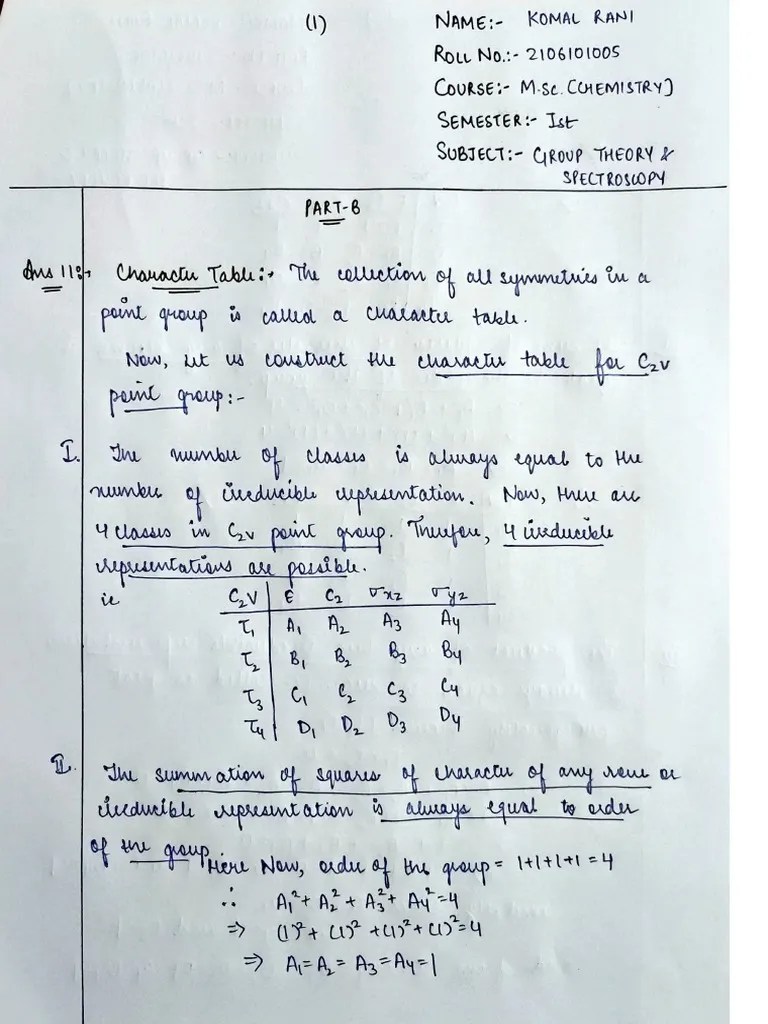 (1)
NAME:- KOMAL RANI
ROLL NO.:- 2106101005
COURSE:- M.Sc. (CHEMISTRY)
SEMESTER:- Ist
SUBJECT:- GROUP THEORY &
SPECTROSCOPY
PART-B
Ans 11:- Character Table:- The collection of all symmetries in a
point group is called a character table.
Now, let us construct the character table for C2v
point group:-
I. The number of classes is always equal to the
number of irreducible representation. Now, there are
4 classes in C2v point group. Therefore, 4 irreducible
representations are possible.
ie C2V E C2 σxz σyz
τ1 A1 A2 A3 A4
τ2 B1 B2 B3 B4
τ3 C1 C2 C3 C4
τ4 D1 D2 D3 D4
II. The summation of squares of character of any row or
irreducible representation is always equal to order
of the group. Here Now, order of the group = 1+1+1+1 = 4
∴ A1² + A2² + A3² + A4² = 4
⇒ (1)² + (1)² + (1)² + (1)² = 4
⇒ A1 = A2 = A3 = A4 = 1